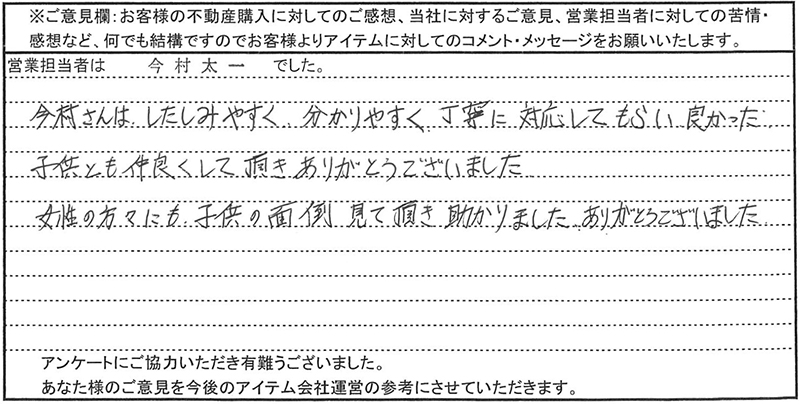 ※ご意見欄：お客様の不動産購入に対してのご感想、当社に対するご意見、営業担当者に対しての苦情・
感想など、何でも結構ですのでお客様よりアイテムに対してのコメント・メッセージをお願いいたします。
営業担当者は 今村太一 でした。
今村さんは、したしみやすく、分かりやすく、丁寧に対応してもらい良かった
子供とも仲良くして頂きありがとうございました
女性の方々にも、子供の面倒見て頂き助かりました。ありがとうございました
アンケートにご協力いただき有難うございました。
あなた様のご意見を今後のアイテム会社運営の参考にさせていただきます。